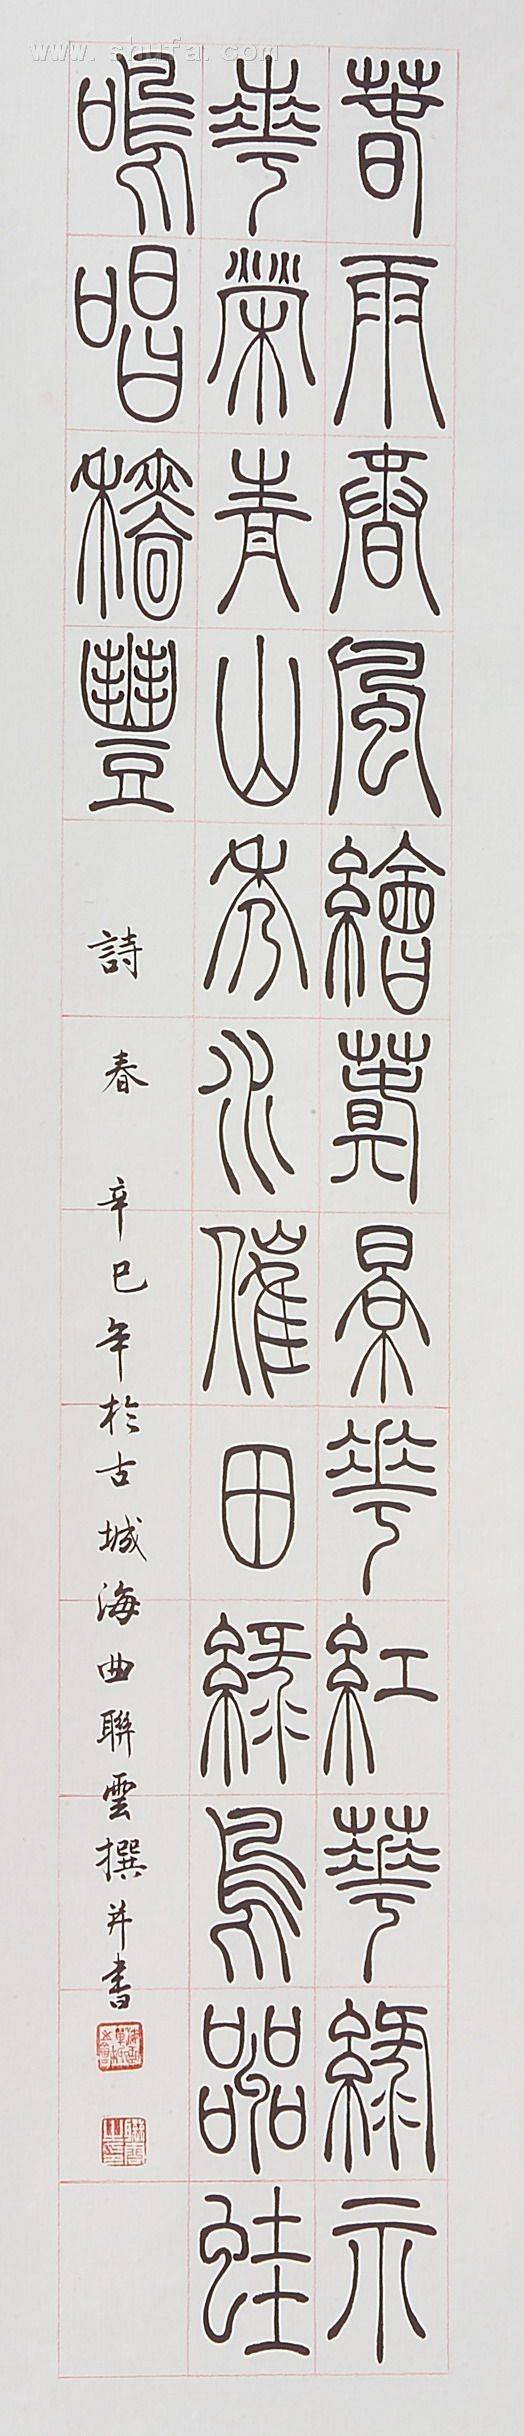 www.shufa.com
春雨春風繪春景花紅華綠示
華榮青山秀水催田綠鳥噪蛙
鳴唱穡豐
詩春 辛巳年於古城海曲聯雲撰并書